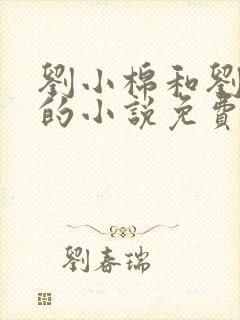 劉小棉和劉
的小說免費
劉春瑞